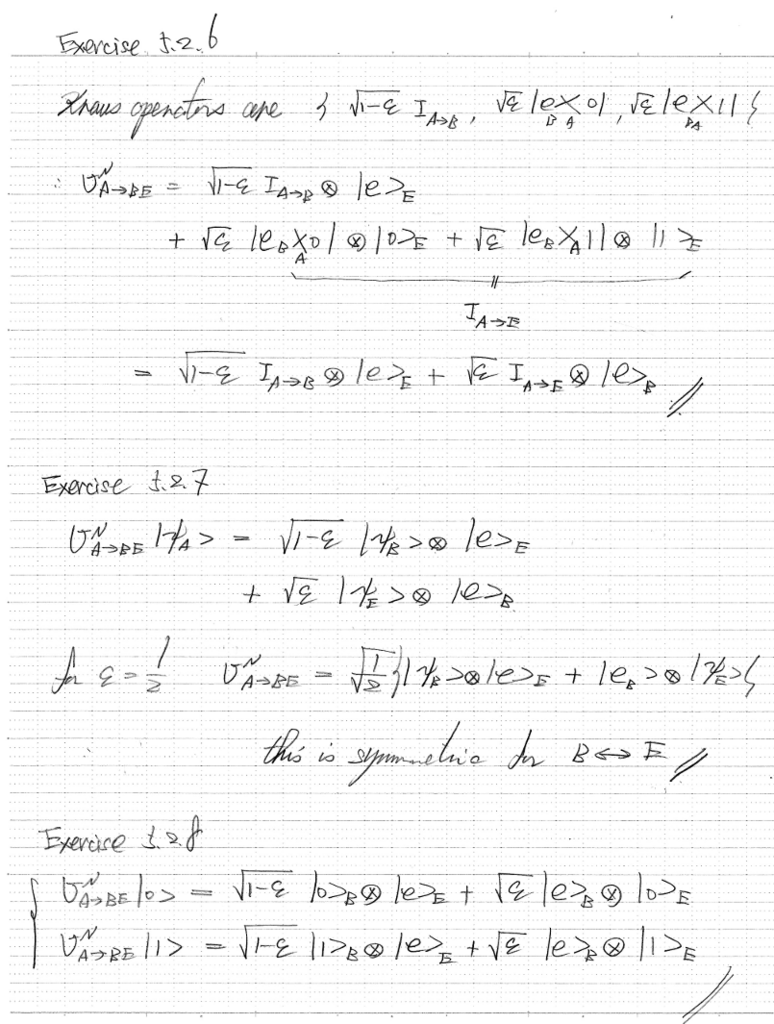 Exercise 5.2.6
Kraus operators are { √(1-ε) I_{A→B}, √ε |e⟩_B⟨0|_A, √ε |e⟩_B⟨1|_A }
∴ U^N_{A→BE} = √(1-ε) I_{A→B} ⊗ |e⟩_E
+ √ε |e_B⟩⟨0|_A ⊗ |0⟩_E + √ε |e_B⟩⟨1|_A ⊗ |1⟩_E
||
I_{A→E}
= √(1-ε) I_{A→B} ⊗ |e⟩_E + √ε I_{A→E} ⊗ |e⟩_B //
Exercise 5.2.7
U^N_{A→BE} |ψ_A⟩ = √(1-ε) |ψ_B⟩ ⊗ |e⟩_E
+ √ε |ψ_E⟩ ⊗ |e⟩_B
for ε = 1/2 U^N_{A→BE} = √(1/2) { |ψ_B⟩ ⊗ |e⟩_E + |e_B⟩ ⊗ |ψ_E⟩ }
this is symmetric for B ↔ E //
Exercise 5.2.8
{ U^N_{A→BE} |0⟩ = √(1-ε) |0⟩_B ⊗ |e⟩_E + √ε |e⟩_B ⊗ |0⟩_E
U^N_{A→BE} |1⟩ = √(1-ε) |1⟩_B ⊗ |e⟩_E + √ε |e⟩_B ⊗ |1⟩_E //